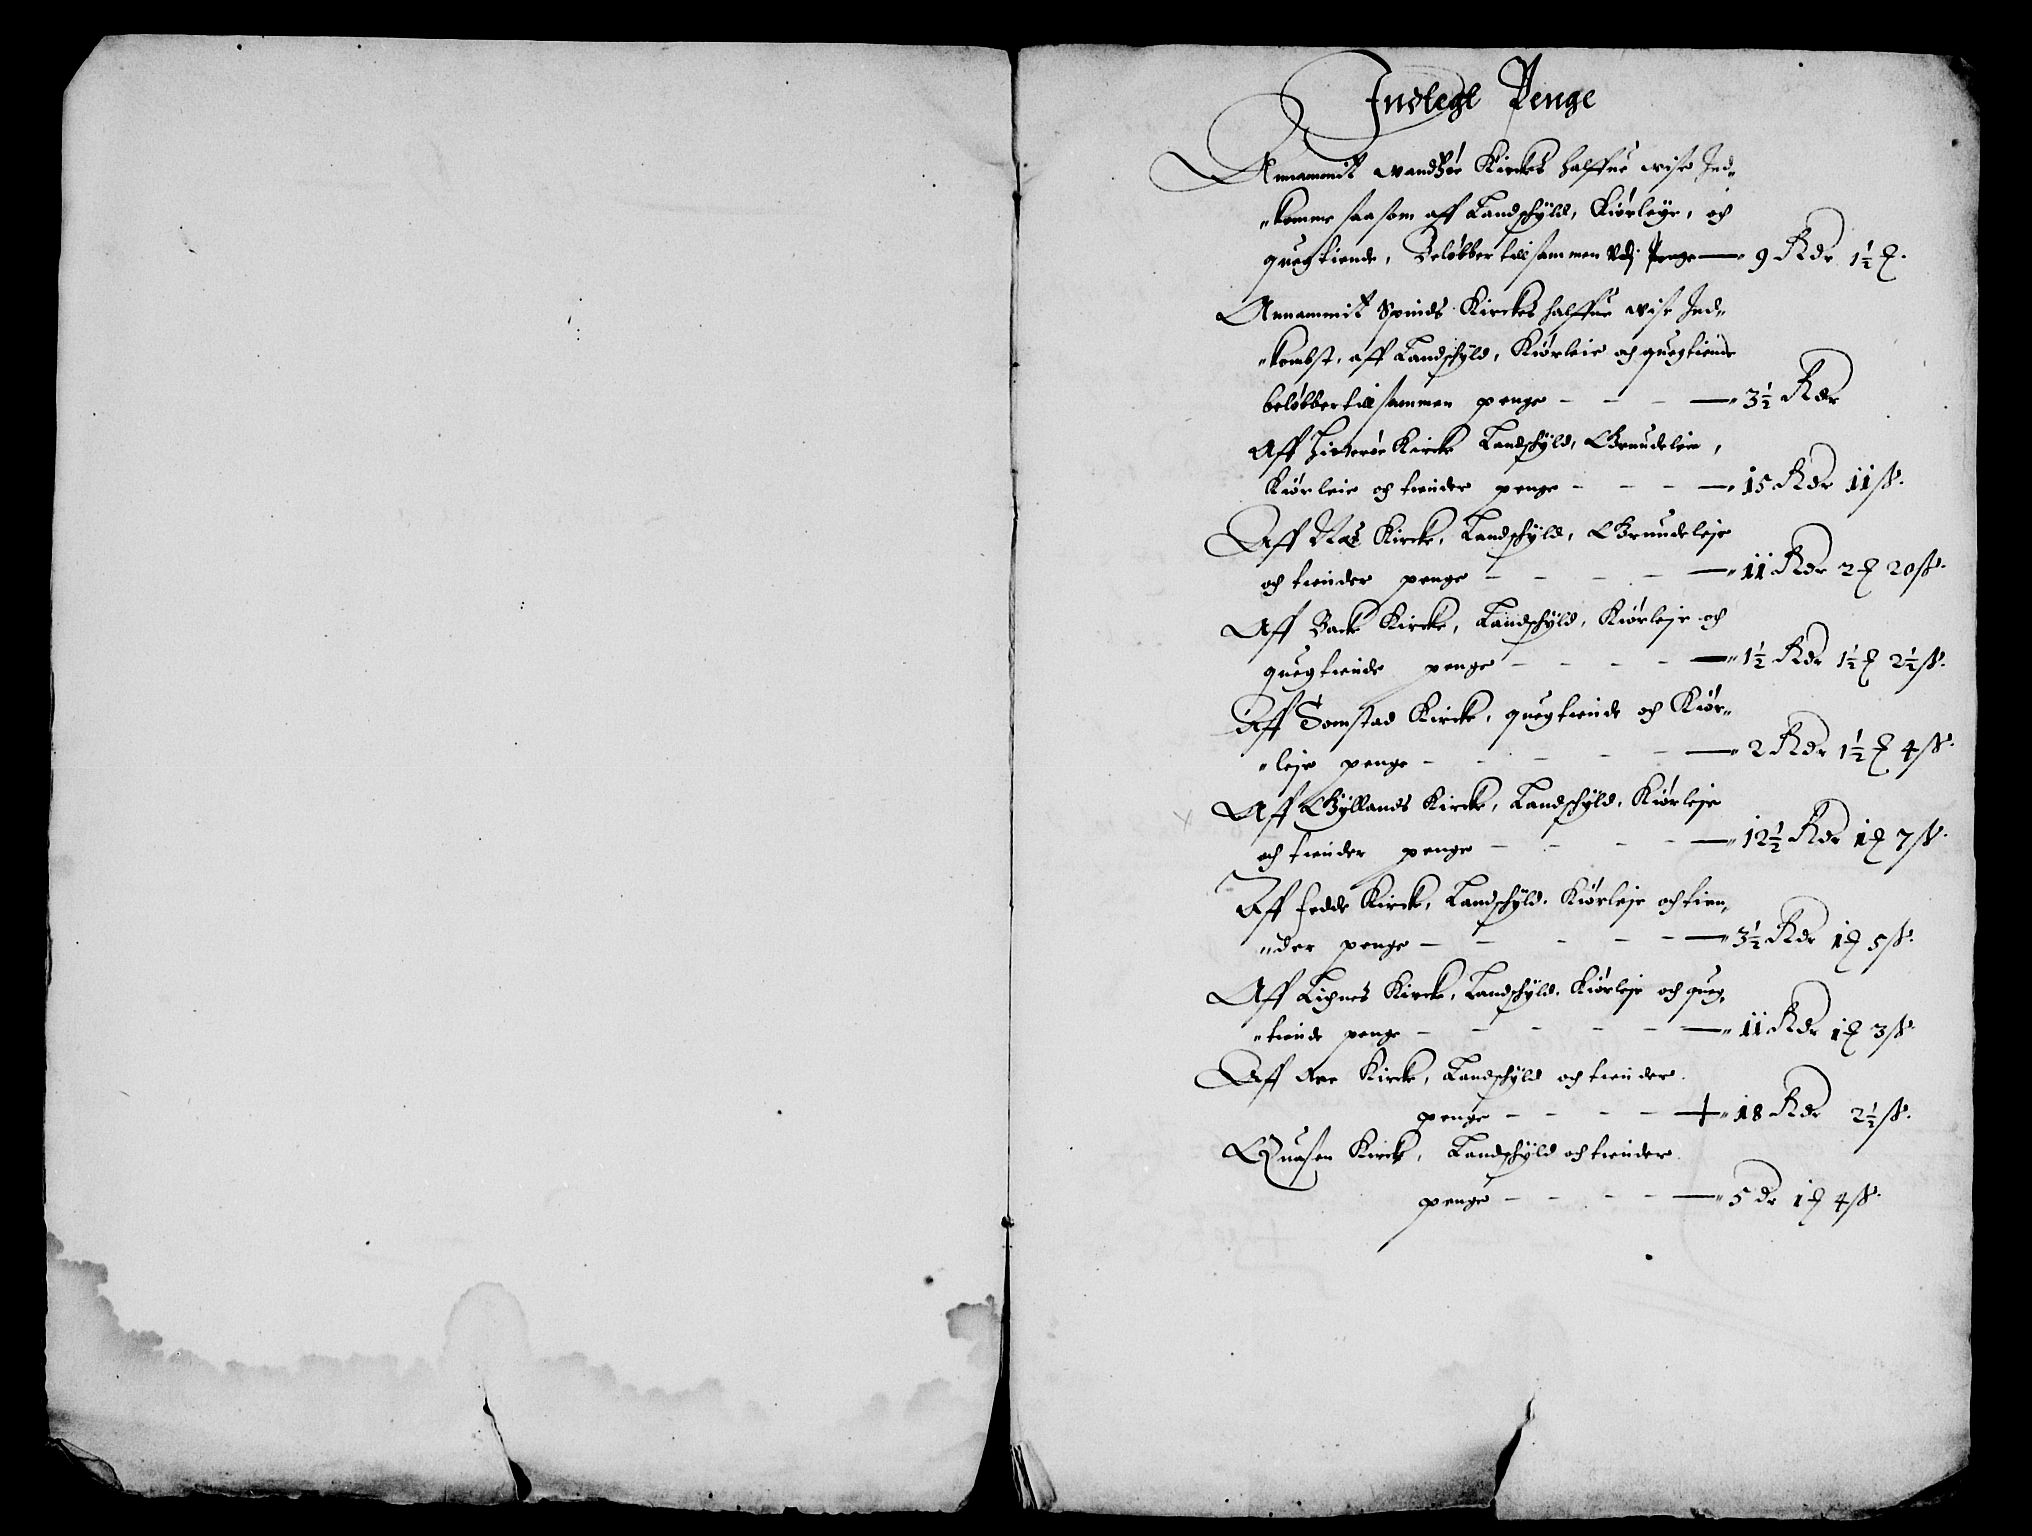 Indlegt Penge
Annammit Wandsøe Kirckes halffue wise Ind„
„komme saa som aff Landschyld, Kiørleye, och
quegtiende, Beløbber till sammen Udj Penge — 9 Rdr 1½ ℳ.
Annammit Spinds Kirckes halffue wise Ind„
„kombst, aff Landschyld, Kiørleie och quegtiende
beløbber till sammen penge - - - — 3½ Rdr
Aff Hitterøe Kircke Landschyld, Grundeleie,
Kiørleie och tiender penge - - - — 15 Rdr 11 ß.
Aff Nes Kircke, Landschyld, Grundeleje
och tiender penge - - - — 11 Rdr 2 ℳ 20 ß.
Aff Backe Kircke, Landschyld, Kiørleje och
quegtiende penge - - - — 1½ Rdr 1½ ℳ 2½ ß.
Aff Tomstad Kircke, quegtiende och Kiør„
„leje penge - - - — 2 Rdr 1½ ℳ 4 ß.
Aff Gyllands Kircke, Landschyld, Kiørleje
och tiender penge - - - — 12½ Rdr 1 ℳ 7 ß.
Aff Fedde Kircke, Landschyld, Kiørleje och tien„
„der penge - - - — 3½ Rdr 1 ℳ 5 ß.
Aff Lignes Kircke, Landschyld, Kiørleje och queg„
„tiende penge - - - — 11 Rdr 1 ℳ 3 ß.
Aff Kircke, Landschyld och tiender
penge - - - — 18 Rdr 2½ ß.
Quasen Kircke, Landschyld och tiender
penge - - - — 5 dr 1 ℳ 4 ß.